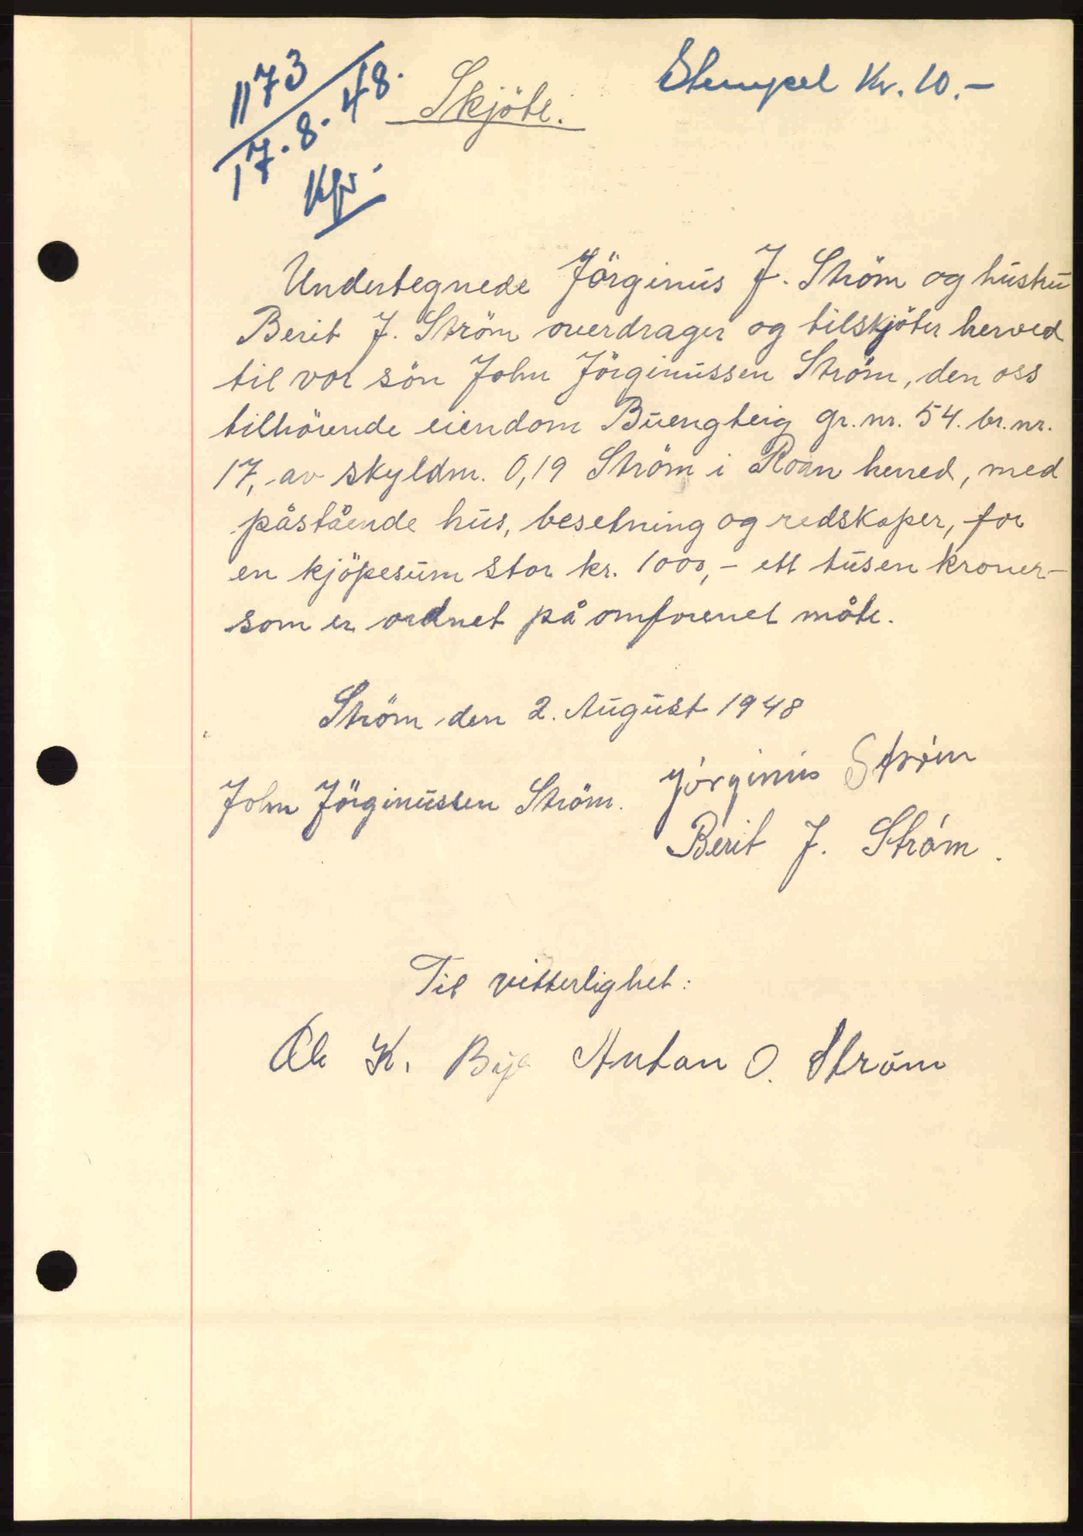 1173
17.8.48.
Skjöte.
Stempel Kr. 10.-
Undertegnede Jörginus J. Ström og hustru
Berit J. Ström overdrager og tilskjöter herved
til vor sön John Jörginussen Ström, den oss
tilhörende eiendom Buengteig gr.nr. 54. br.nr.
17, av skyldm. 0,19 Ström i Roan herred, med
påstående hus, besetning og redskaper, for
en kjöpesum stor kr. 1000,- ett tusen kroner-
som er ordnet på omforenet måte.
Ström den 2. August 1948
John Jörginussen Ström. Jörginus Ström
Berit J. Ström.
Til vitterlighet:
Ole K. Bye Anton O. Ström